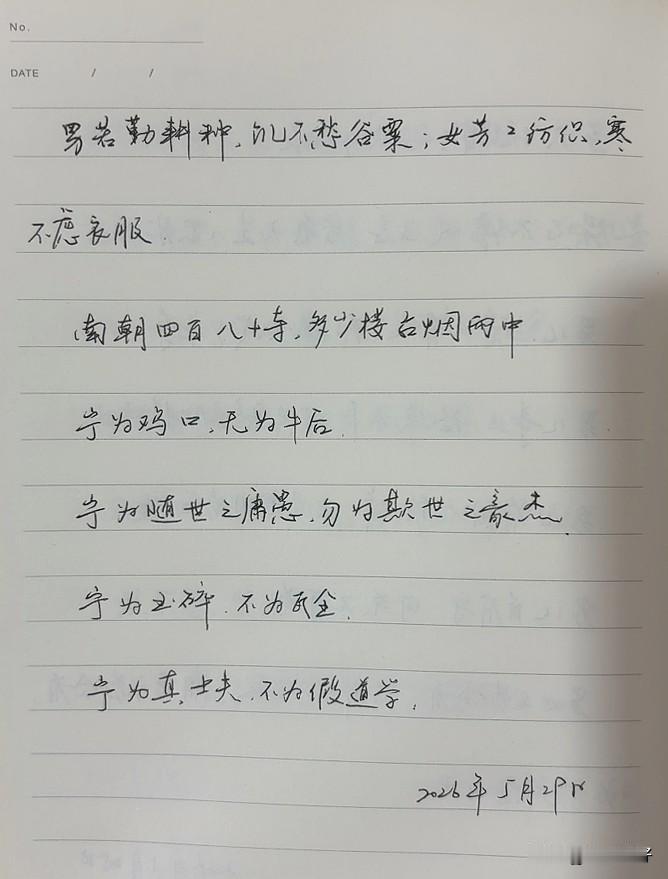 No.
DATE / /
男若勤耕种,饥不愁谷粟;女若工纺织,寒
不虑衣服.
南朝四百八十寺,多少楼台烟雨中
宁为鸡口,无为牛后.
宁为随世之庸愚,勿为欺世之豪杰.
宁为玉碎.不为瓦全.
宁为真士夫.不为假道学.
2026年5月29日